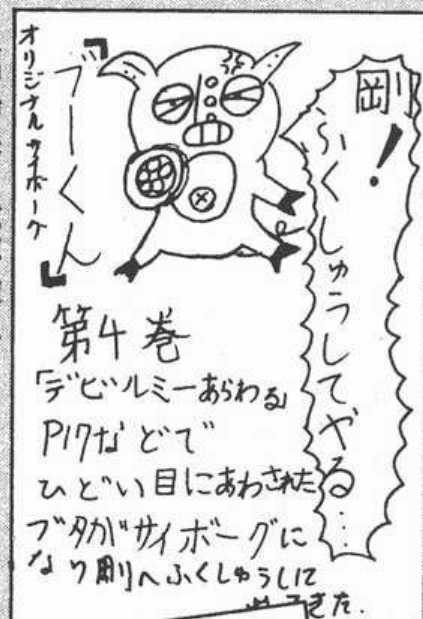 剛!
ふくしゅうしてやる…
オリジナルサイボーグ
『ブーくん』
第4巻
「デビルミーあらわる」
P17などで
ひどい目にあわされた
ブタがサイボーグに
なり剛へふくしゅうしに
てきた.